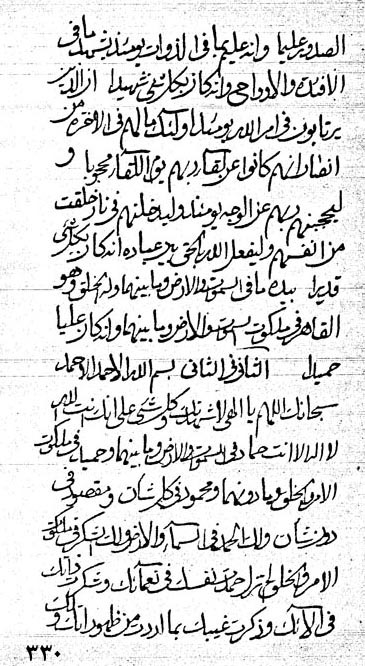 الصدور عليما وانه عليما فى الذوات يومئذ يشهد ما فى
الافئدة والارواح وانه كان بكل شئ شهيدا ان الذين
يرتابون فى امر الله يومئذ اولئك ما لهم فى الاخرة من
انهم كانوا عن لقاء ربهم يوم اللقاء محجوبا و
ليحجبنهم ربهم عن الوجه يومئذ وليدخلنهم فى نار خلقت
من انفسهم وليفعل الله بالحق بين عباده انه كان بكل شئ
قديرا بيده ما فى السموات والارض وما بينهما وله الخلق وهو
القاهر فى ملكوت السموات والارض وما بينهما وانه كان عليا
حميدا الثانى فى الثانى بسم الله الاحمد الاحمد
سبحانك اللهم يا الهى لاشهدنك وكل شئ على انك انت الله
لا اله الا انت حماد فى السموات والارض وما بينهما وحميد فى ملكوت
الامر والخلق وما دونهما ومحمود فى كل شان ومقصود فى
دون شان ولك الحمد فى السماء والارض ولك الشكر فى ملكوت
الامر والخلق لم تزل حمدت نفسك فى نعمائك وشكرت ذاتك
فى الائك وذكرت غيبك بما اردت من ظهورات
٣٣٠